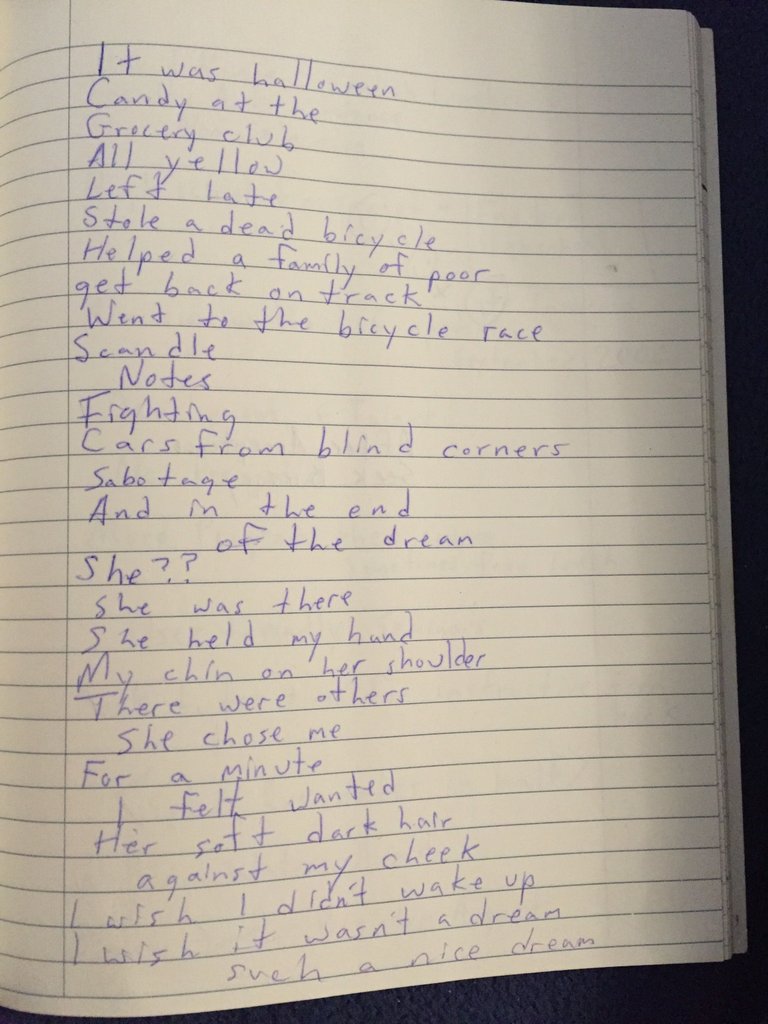 It was halloween
Candy at the
Grocery club
All yellow
Left Late
Stole a dead bicycle
Helped a family of poor
get back on track
Went to the bicycle race
Scandle
Notes
Fighting
Cars from blind corners
Sabotage
And in the end
of the drean
She??
She was there
She held my hand
My chin on her shoulder
There were others
She chose me
For a minute
I felt wanted
Her soft dark hair
against my cheek
I wish I didn't wake up
I wish it wasn't a dream
such a nice dream